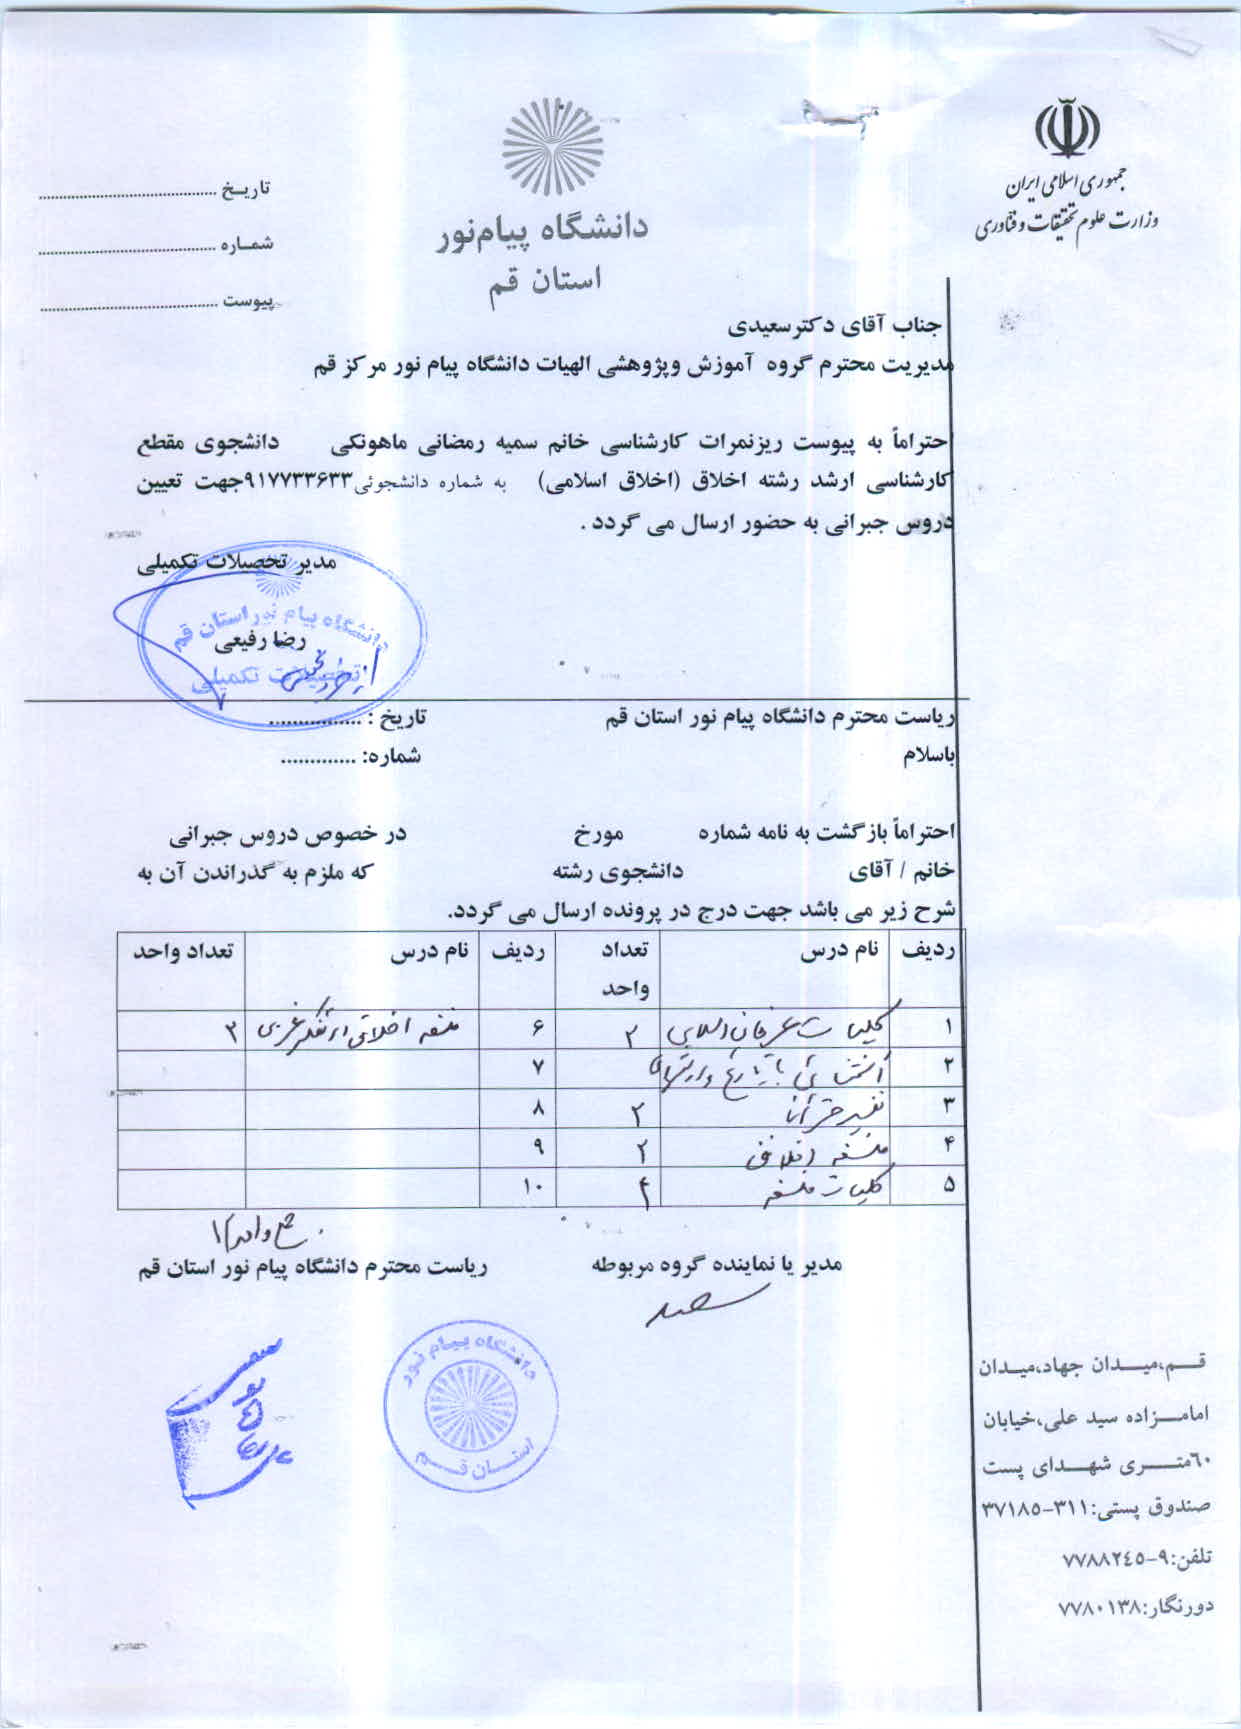 جمهوری اسلامی ایران
وزارت علوم تحقیقات و فناوری
دانشگاه پیام‌نور
استان قم
تاریـخ ........................................
شمـاره ........................................
پیوست ........................................
جناب آقای دکترسعیدی
مدیریت محترم گروه آموزش وپژوهشی الهیات دانشگاه پیام نور مرکز قم
احتراماً به پیوست ریزنمرات کارشناسی خانم سمیه رمضانی ماهونکی دانشجوی مقطع
کارشناسی ارشد رشته اخلاق (اخلاق اسلامی) به شماره دانشجوئی۹۱۷۷۳۳۶۳۳جهت تعیین
دروس جبرانی به حضور ارسال می گردد .
مدیر تحصیلات تکمیلی
دانشگاه پیام نور استان قم
رضا رفیعی
تحصیلات تکمیلی
ریاست محترم دانشگاه پیام نور استان قم تاریخ : ................
باسلام شماره: .............
احتراماً بازگشت به نامه شماره مورخ در خصوص دروس جبرانی
خانم / آقای دانشجوی رشته که ملزم به گذراندن آن به
شرح زیر می باشد جهت درج در پرونده ارسال می گردد.
ردیف نام درس تعداد واحد ردیف نام درس تعداد واحد
۱ کلیات عرفان اسلامی ۲ ۶ فلسفه اخلاق در تفکر غربی ۲
۲ آشنائی با ۷
۳ تفسیر قرآن ۲ ۸
۴ فلسفه اخلاق ۲ ۹
۵ کلیات فلسفه ۴ ۱۰
مدیر یا نماینده گروه مربوطه ریاست محترم دانشگاه پیام نور استان قم
دانشگاه پیام نور
استان قم
قـم،میـدان جهاد،میـدان
امامـزاده سید علی،خیابان
٦٠متـری شهـدای پست
صندوق پستی:۳۱۱-۳۷۱۸۵
تلفن:۹-۷۷۸۸۲٤٥
دورنگار:۷۷۸۰۱۳۸